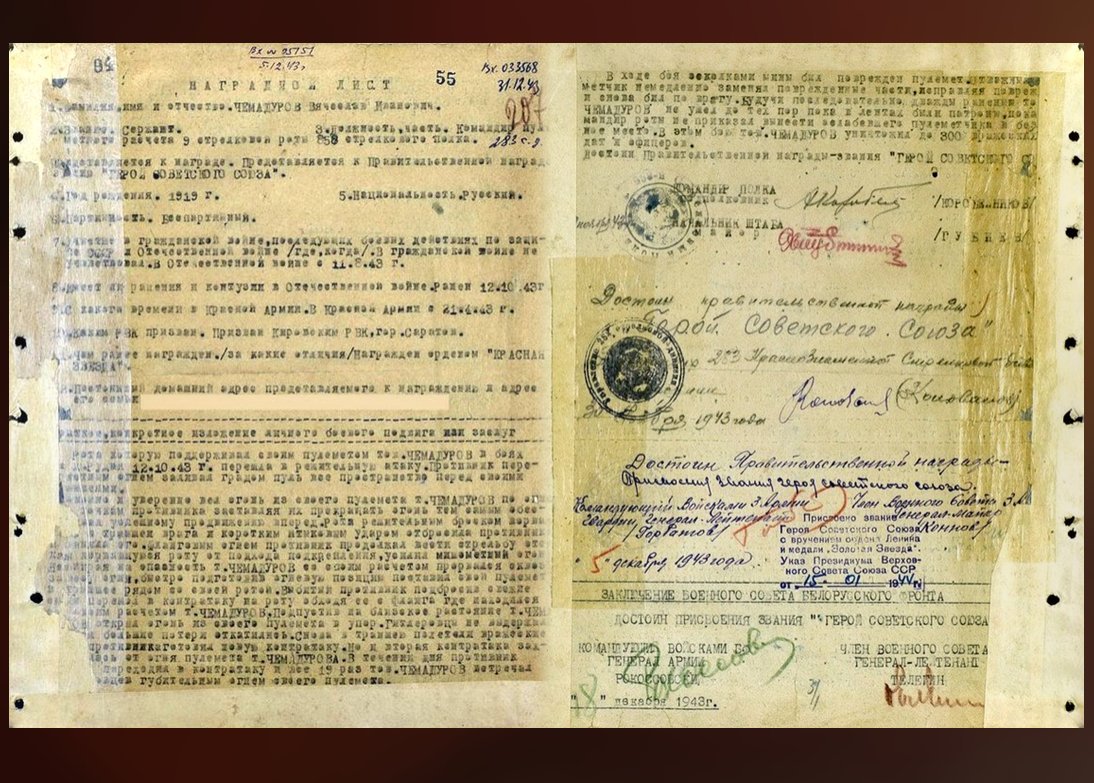 Вх № 05151
5.12.43г
94
НАГРАДНОЙ ЛИСТ
55
Вх. 033568
31.12.43
1.Фамилия,имя и отчество.ЧЕМАДУРОВ Вячеслав Иванович.
2.Звание. Сержант. 3.Должность,часть. Командир пуле-
метного расчета 9 стрелковой роты 858 стрелкового полка.
283 с.д.
Представляется к награде. Представляется к Правительственной награде
"ГЕРОЙ СОВЕТСКОГО СОЮЗА".
4.Год рождения. 1919 г. 5.Национальность.Русский.
6.Партийность. Беспартийный.
7.Участие в гражданской войне,последующих боевых действиях по защи-
те СССР и Отечественной войне /где,когда/.В гражданской войне не
участвовал.В Отечественной войне с 11.8.43 г.
8.Имеет ли ранения и контузии в Отечественной войне.Ранен 12.10.43г
9.С какого времени в Красной Армии.В Красной Армии с 21.4.43 г.
10.Каким РВК призван. Призван Кировским РВК,гор.Саратов.
11.Чем ранее награжден./за какие отличия/Награжден орденом "КРАСНАЯ
ЗВЕЗДА".
12.Постоянный домашний адрес представляемого к награждению и адрес
его семьи
Краткое,конкретное изложение личного боевого подвига или заслуг
Рота которую поддерживал своим пулеметом тов.ЧЕМАДУРОВ в боях
12.10.43 г. перешла в решительную атаку.Противник встре-
тил огнем засыпая градом пуль все пространство перед своими
и уверенно вел огонь из своего пулемета т.ЧЕМАДУРОВ по
противника заставляя их прекращать огонь тем самым
успешному продвижению вперед.Рота решительным броском ворва-
лась в траншеи врага и коротким штыковым ударом отбросила противни-
ка.Фланговым огнем противник продолжал вести стрельбу по
роте с подхода подкрепления,усилил пулеметный огонь
опасность т.ЧЕМАДУРОВ со своим расчетом прорвался сквозь
огня,быстро подготовил огневую позицию поставил свой пулемет
рядом со своей ротой.Выбитый противник подбросив свежие
перешел в контратаку на роту обходя ее с фланга где находился
расчетом т.ЧЕМАДУРОВ.Подпустив на близкое растояние т.ЧЕМ
открыл огонь из своего пулемета в упор.Гитлеровцы не выдержав
большие потери откатились.Снова в траншеи полетели вражеские
противник готовил новую контратаку.Но и вторая контратака зах-
от огня пулемета т.ЧЕМАДУРОВА.В течении дня противник
переходил в контратаку и все 19 раз тов.ЧЕМАДУРОВ встречал
губительным огнем своего пулемета.
В ходе боя осколками мины был поврежден пулемет.Отважный
метчик немедленно заменял поврежденные части,исправлял повреж
и снова бил по врагу.Будучи последовательно дважды раненным то
ЧЕМАДУРОВ не ушел до тех пор пока в лентах были патроны,пока
мандир роты не приказал вывести ослабевшего пулеметчика в без
ное место.В этом бою тов.ЧЕМАДУРОВ уничтожил до 300 вражеских
дат и офицеров.
Достоин Правительственной награды-звания "ГЕРОЙ СОВЕТСКОГО СО
КОМАНДИР ПОЛКА
подполковник /КОРОБЕЙНИКОВ/
НАЧАЛЬНИК ШТАБА
майор /РУБЦЕВ/
Достоин правительственной награды
"Герой Советского Союза"
283 Краснознаменной Стрелковой
(Коновалов)
1943 года
Достоин Правительственной награды-
Присвоения звания героя советского союза.
Командующий Войсками 3.Армии Член Военного Совета 3.А.
Гвардии Генерал-Лейтенант Генерал-Майор
/Горбатов/ /Коннов/
Присвоено звание
Героя Советского Союза
с вручением ордена Ленина
и медали „Золотая Звезда".
Указ Президиума Верхов-
ного Совета Союза ССР
от „15" 01 1944 г.
5 декабря 1943 года.
ЗАКЛЮЧЕНИЕ ВОЕННОГО СОВЕТА БЕЛОРУССКОГО ФРОНТА
ДОСТОИН ПРИСВОЕНИЯ ЗВАНИЯ "ГЕРОЙ СОВЕТСКОГО СОЮЗА
КОМАНДУЮЩИЙ ВОЙСКАМИ ЧЛЕН ВОЕННОГО СОВЕТА
ГЕНЕРАЛ АРМИИ ГЕНЕРАЛ-ЛЕЙТЕНАНТ
РОКОССОВСКИЙ ТЕЛЕГИН
"18" декабря 1943г.